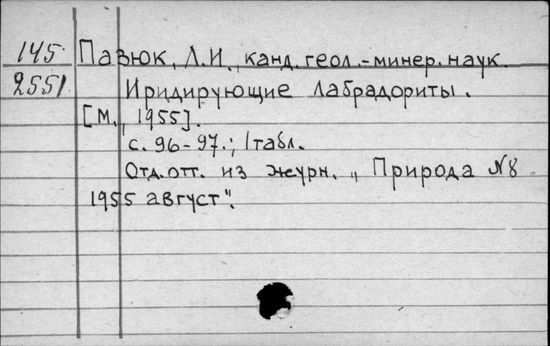 145 Пазюк, Л.И., канд. геол.-минер. наук.
2551 Иридирующие лабрадориты.
[М., 1955].
с. 96-97.; 1 табл.
Отд. отт. из журн. „Природа №8
1955 август".